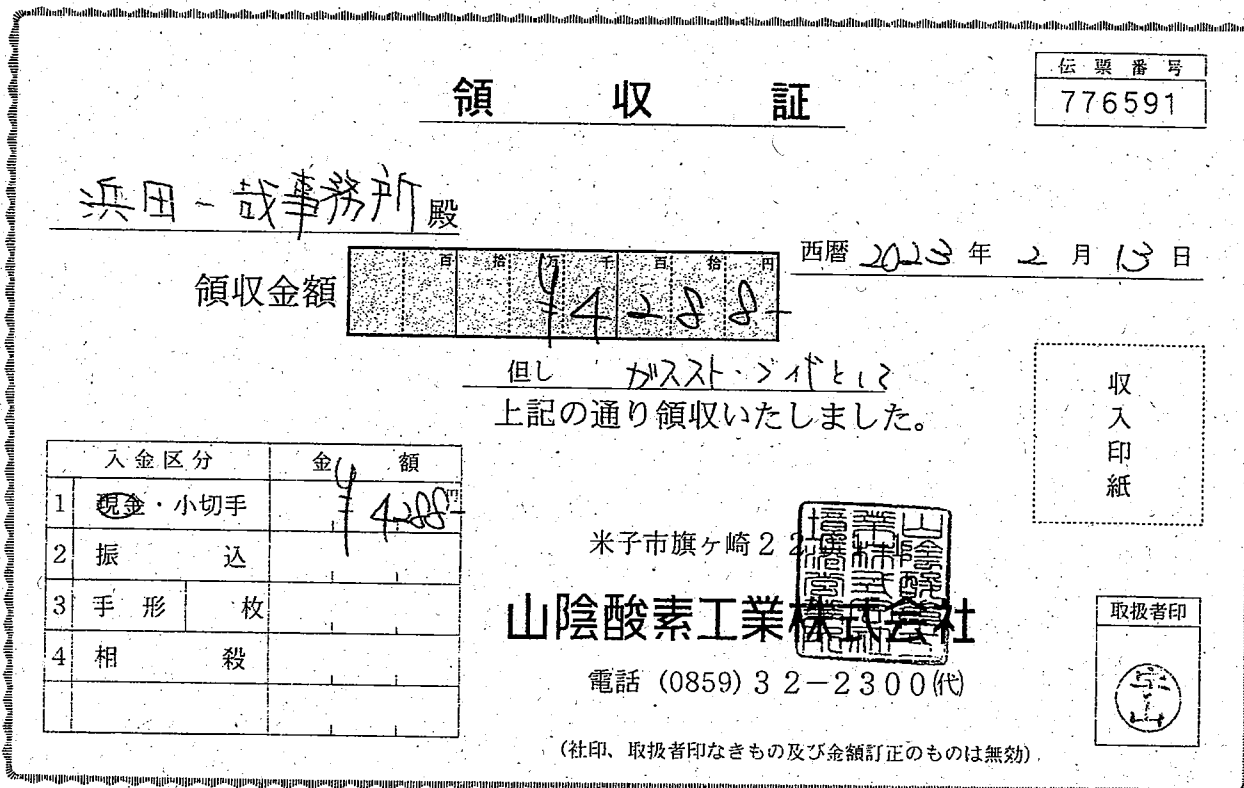 伝票番号
776591
領収証
浜田一哉事務所殿
西暦2023年2月13日
百拾万千百拾円
領収金額 ¥4288-
但し ガスストーブ代として
上記の通り領収いたしました。
収入印紙
入金区分 金額
1 現金・小切手 ¥4288- 円
2 振込
3 手形 枚
4 相殺
米子市旗ヶ崎22
山陰酸素工業株式会社
山陰酸素工業株式会社境港営業所
電話 (0859) 32-2300(代)
取扱者印
(社印、取扱者印なきもの及び金額訂正のものは無効)